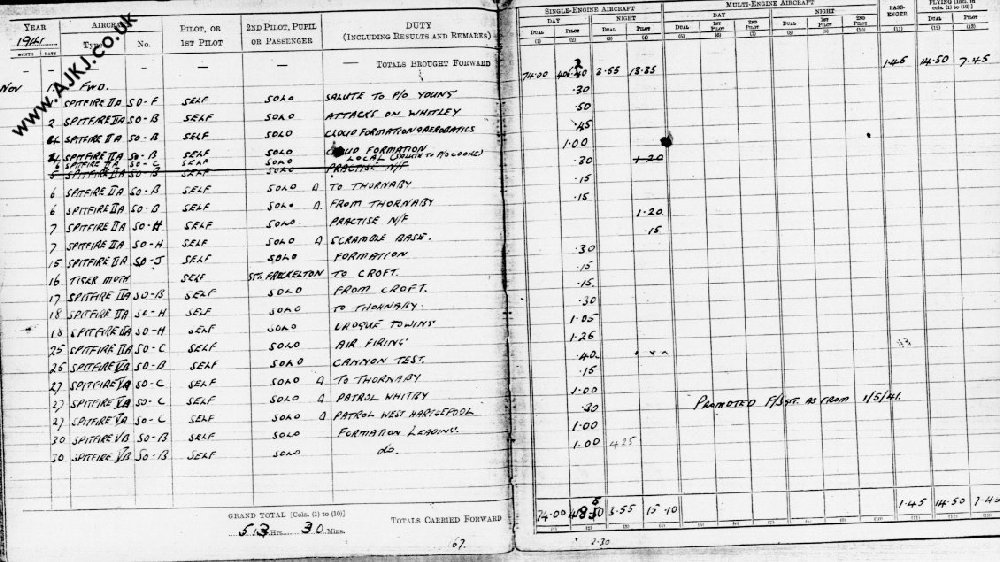 YEAR
AIRCRAFT
PILOT, OR
2ND PILOT, PUPIL
DUTY
SINGLE-ENGINE AIRCRAFT
MULTI-ENGINE AIRCRAFT
PASS-
ENGER
1941
Type
No.
1ST PILOT
OR PASSENGER
(INCLUDING RESULTS AND REMARKS)
DAY
NIGHT
DAY
NIGHT
MONTH
DATE
DUAL
PILOT
DUAL
PILOT
DUAL
1ST PILOT
2ND PILOT
DUAL
1ST PILOT
2ND PILOT
DUAL
PILOT
(1) (2) (3) (4) (5) (6) (7) (8) (9) (10) (11) (12) (13)
TOTALS BROUGHT FORWARD
74.00 3.55 13.35 1.45 14.50 7.45
NOV FWD.
SPITFIRE IIA SO-F SELF SOLO SALUTE TO P/O YOUNG .30
2 SPITFIRE IIA SO-B SELF SOLO ATTACKS ON WHITLEY .50
SPITFIRE IIA SO-B SELF SOLO CLOUD FORMATION .45
SPITFIRE IIA SO-B SELF SOLO CLOUD FORMATION 1.00
6 SPITFIRE IIA SO-C SELF SOLO LOCAL .30
5 SPITFIRE IIA SO-B SELF SOLO PRACTISE N/F 1.20
6 SPITFIRE IIA SO-B SELF SOLO TO THORNABY .15
6 SPITFIRE IIA SO-B SELF SOLO FROM THORNABY .15
7 SPITFIRE IIA SO-H SELF SOLO PRACTISE N/F 1.20
7 SPITFIRE IIA SO-H SELF SOLO SCRAMBLE BASE. 15
15 SPITFIRE IIA SO-J SELF SOLO FORMATION .30
16 TIGER MOTH SELF SGT. FRECKELTON TO CROFT. .15
17 SPITFIRE IIA SO-B SELF SOLO FROM CROFT. .15
18 SPITFIRE IIA SO-H SELF SOLO TO THORNABY. .30
18 SPITFIRE IIA SO-H SELF SOLO DROGUE TOWING 1.05
25 SPITFIRE IIA SO-C SELF SOLO AIR FIRING 1.25
26 SPITFIRE VB SO-B SELF SOLO CANNON TEST. .40
27 SPITFIRE VA SO-C SELF SOLO TO THORNABY .15
27 SPITFIRE VA SO-C SELF SOLO PATROL WHITBY 1.00
27 SPITFIRE VA SO-C SELF SOLO PATROL WEST HARTLEPOOL .30 PROMOTED F/SGT. AS FROM 1/5/41.
30 SPITFIRE VB SO-B SELF SOLO FORMATION LEADING. 1.00
30 SPITFIRE VB SO-B SELF SOLO do. 1.00 425
GRAND TOTAL [Cols. (1) to (10)]
Hrs. 30 Mins.
TOTALS CARRIED FORWARD
74.00 3.55 15.10 1.45 14.50 7.45
67.
2.30
www.AJKJ.co.uk